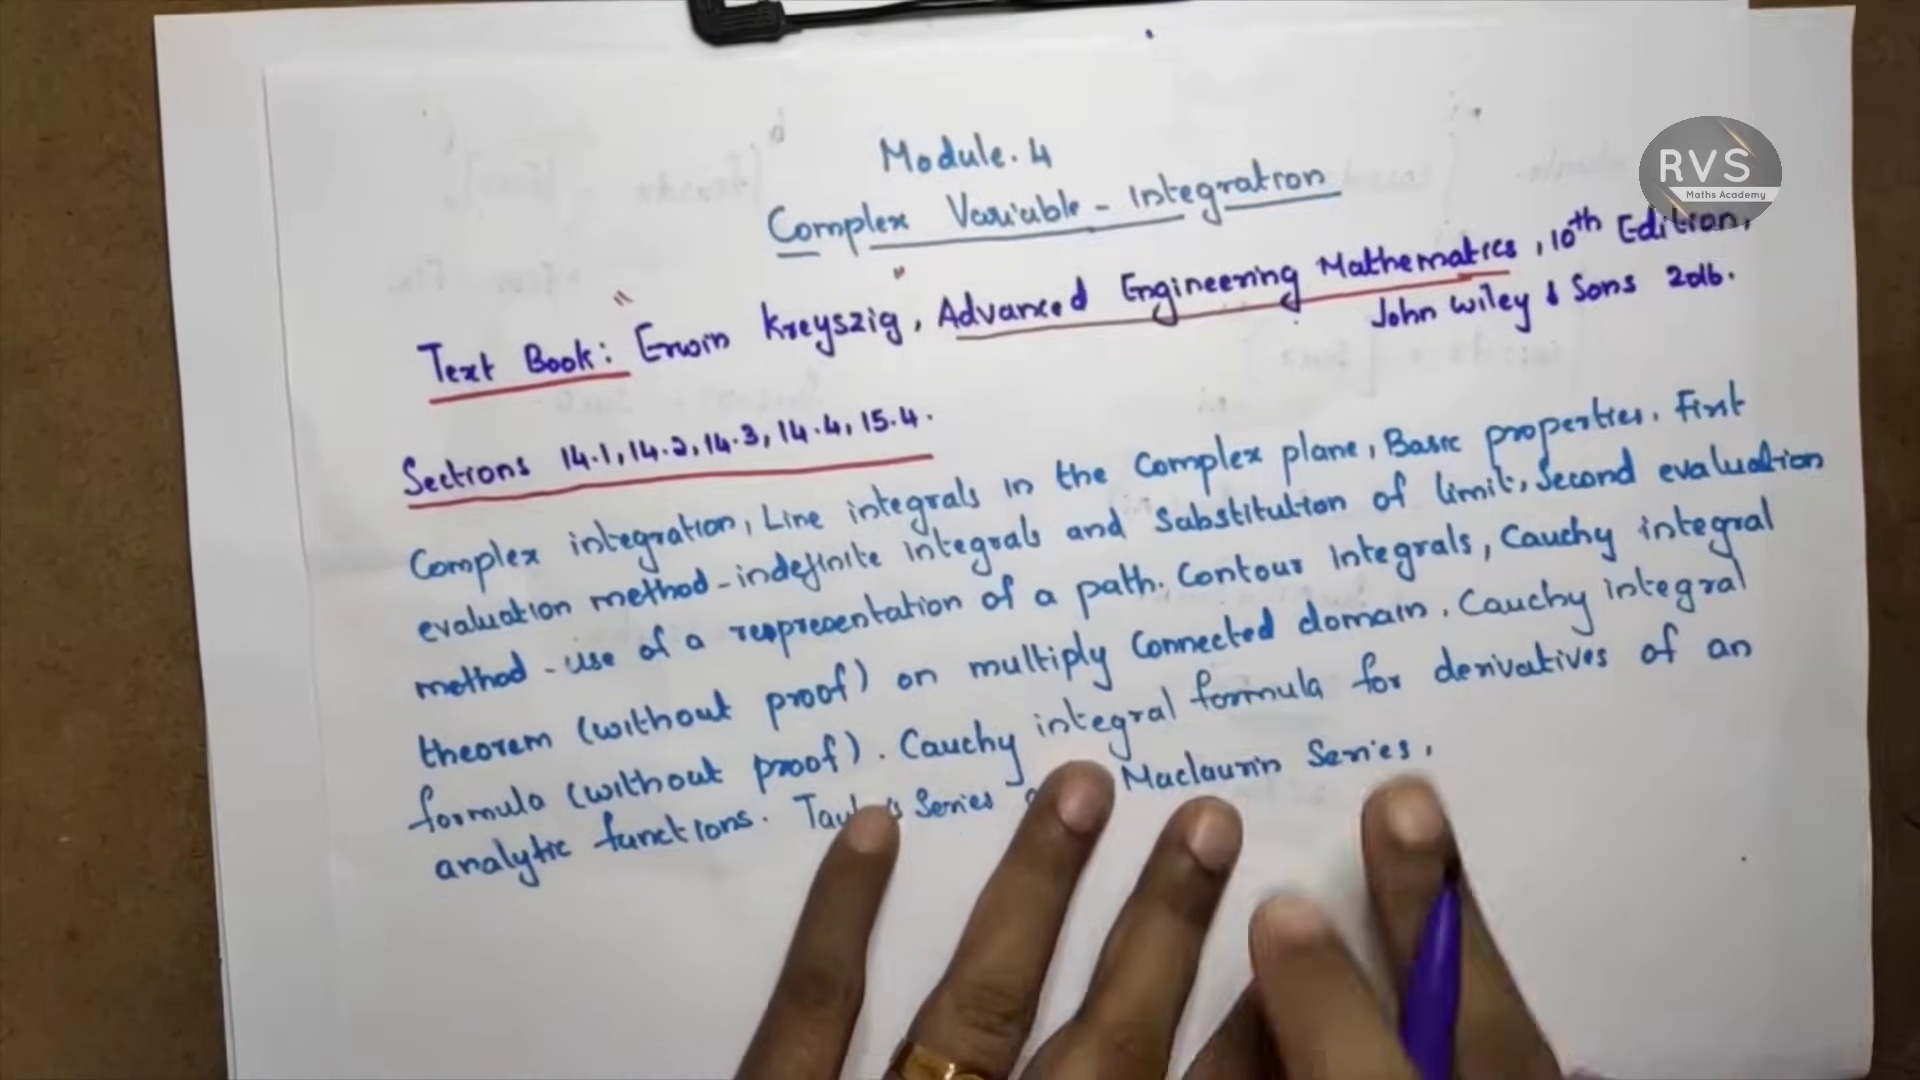 Module. 4
Complex Variable - Integration
RVS
Maths Academy
Text Book: Erwin Kreyszig, Advanced Engineering Mathematics, 10th Edition,
John Wiley & Sons 2016.
Sections 14.1, 14.2, 14.3, 14.4, 15.4.
Complex integration, Line integrals in the Complex plane, Basic properties. First
evaluation method - indefinite integrals and Substitution of limit, Second evaluation
method - use of a representation of a path. Contour integrals, Cauchy integral
theorem (without proof) on multiply Connected domain. Cauchy integral
formula (without proof). Cauchy integral formula for derivatives of an
analytic functions. Series Maclaurin Series.